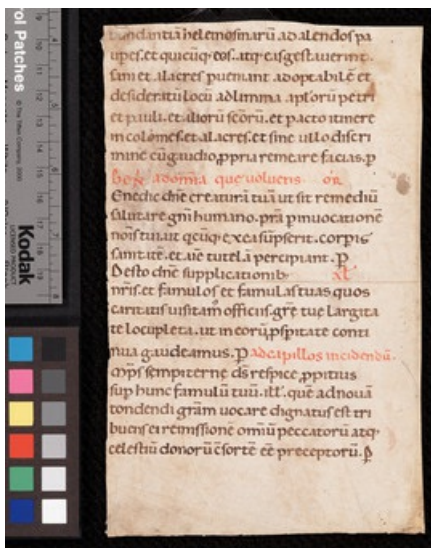 rol Patches
© The Tiffen Company, 2000
Kodak
LICENSED PRODUCT
bundantiā helemosinarū. ad alendos pa
upes. et quicūq; eos. atq; eis gesta
sani et alacres pueniant adoptabilē et
desideratū locū ad limina aplōrū petri
et pauli. et aliorū scōrū. et pacto itinere
incolomes. et alacres. et sine ullo discri
mine cū gaudio, ꝓpria remeare facias. ꝑ
ad omīa que volueris. oR
Enedic dnē creaturā tuā ut sit remediū
salutare gnī humano. prā ꝑ inuocationē
nōis tui. ut qcūq; ex ea sūpserit. corpis
sanitātē. et aīe tutelā percipiant. ꝑ
Desto dnē supplicationib;
nrīs. et famulos et famulas tuas quos
caritatis uisitam officiis. grē tue largita
te locupleta. ut meorū ꝓspitate conti
nua gaudeamus. ꝑ ad capillos incidendū.
mps sempiterne ds respice ꝓpitius
sup hunc famulū tuū. ill'. quē ad nouā
tondendi grām uocare dignatus est tri
buens ei remissionē omīū peccatorū atq;
celestiū donorū cōsorte eē preceptorū. ꝑ